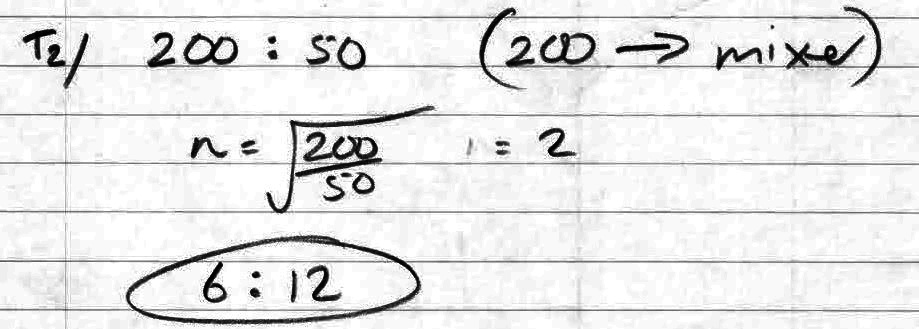 T2/ 200 : 50 (200 → mixer)
n = √200/50 = 2
6 : 12